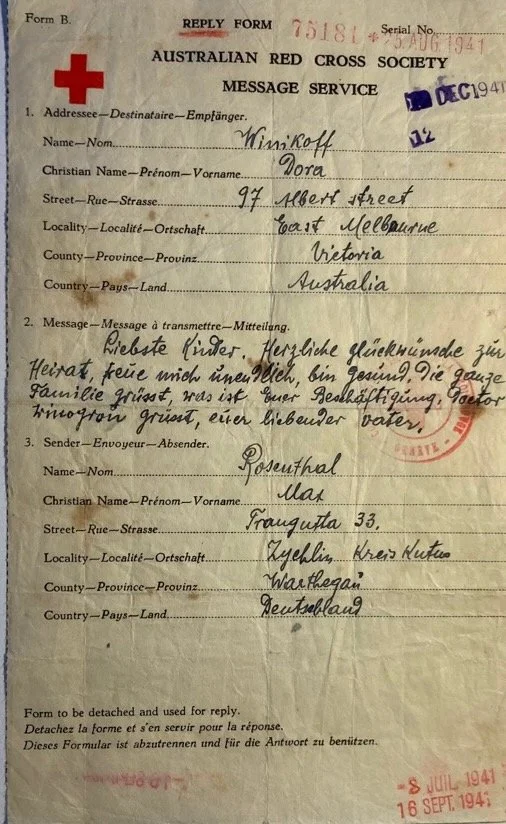 Form B.
REPLY FORM
Serial No.
75181 * 25 AUG 1941
AUSTRALIAN RED CROSS SOCIETY
MESSAGE SERVICE
DEC 1941
12
1. Addressee—Destinataire—Empfänger.
Name—Nom Winikoff
Christian Name—Prénom—Vorname Dora
Street—Rue—Strasse 97 Albert street
Locality—Localité—Ortschaft East Melbourne
County—Province—Provinz Victoria
Country—Pays—Land Australia
2. Message—Message à transmettre—Mitteilung.
Liebste Kinder. Herzliche glückwünsche zur
Heirat, freue mich unendlich, bin gesund. Die ganze
Familie grüsst, was ist Euer Beschäftigung. Doctor
Winogron grüsst, euer liebender vater.
GENÈVE
3. Sender—Envoyeur—Absender.
Name—Nom Rosenthal
Christian Name—Prénom—Vorname Max
Street—Rue—Strasse 33.
Locality—Localité—Ortschaft Zychlin Kreis Kutno
County—Province—Provinz Warthegau
Country—Pays—Land Deutschland
Form to be detached and used for reply.
Detachez la forme et s'en servir pour la réponse.
Dieses Formular ist abzutrennen und für die Antwort zu benützen.
-8 JUIL 1941
16 SEPT. 1941